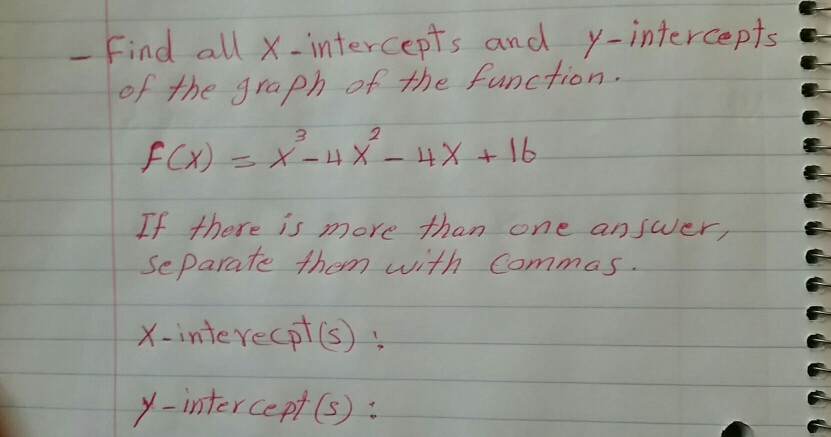 - Find all x-intercepts and y-intercepts
of the graph of the function.
f(x) = x³ - 4x² - 4x + 16
If there is more than one answer,
separate them with commas.
x-interecpt(s):
y-intercept(s):